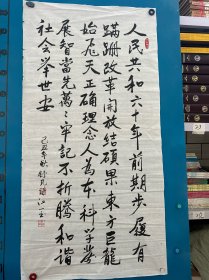 人民共和六十年前期步履有
蹒跚改革开放结硕果东方巨龙
始飞天正确理念人为本科学发
展智当先万万牢记不折腾和谐
社会举世安
己丑年秋